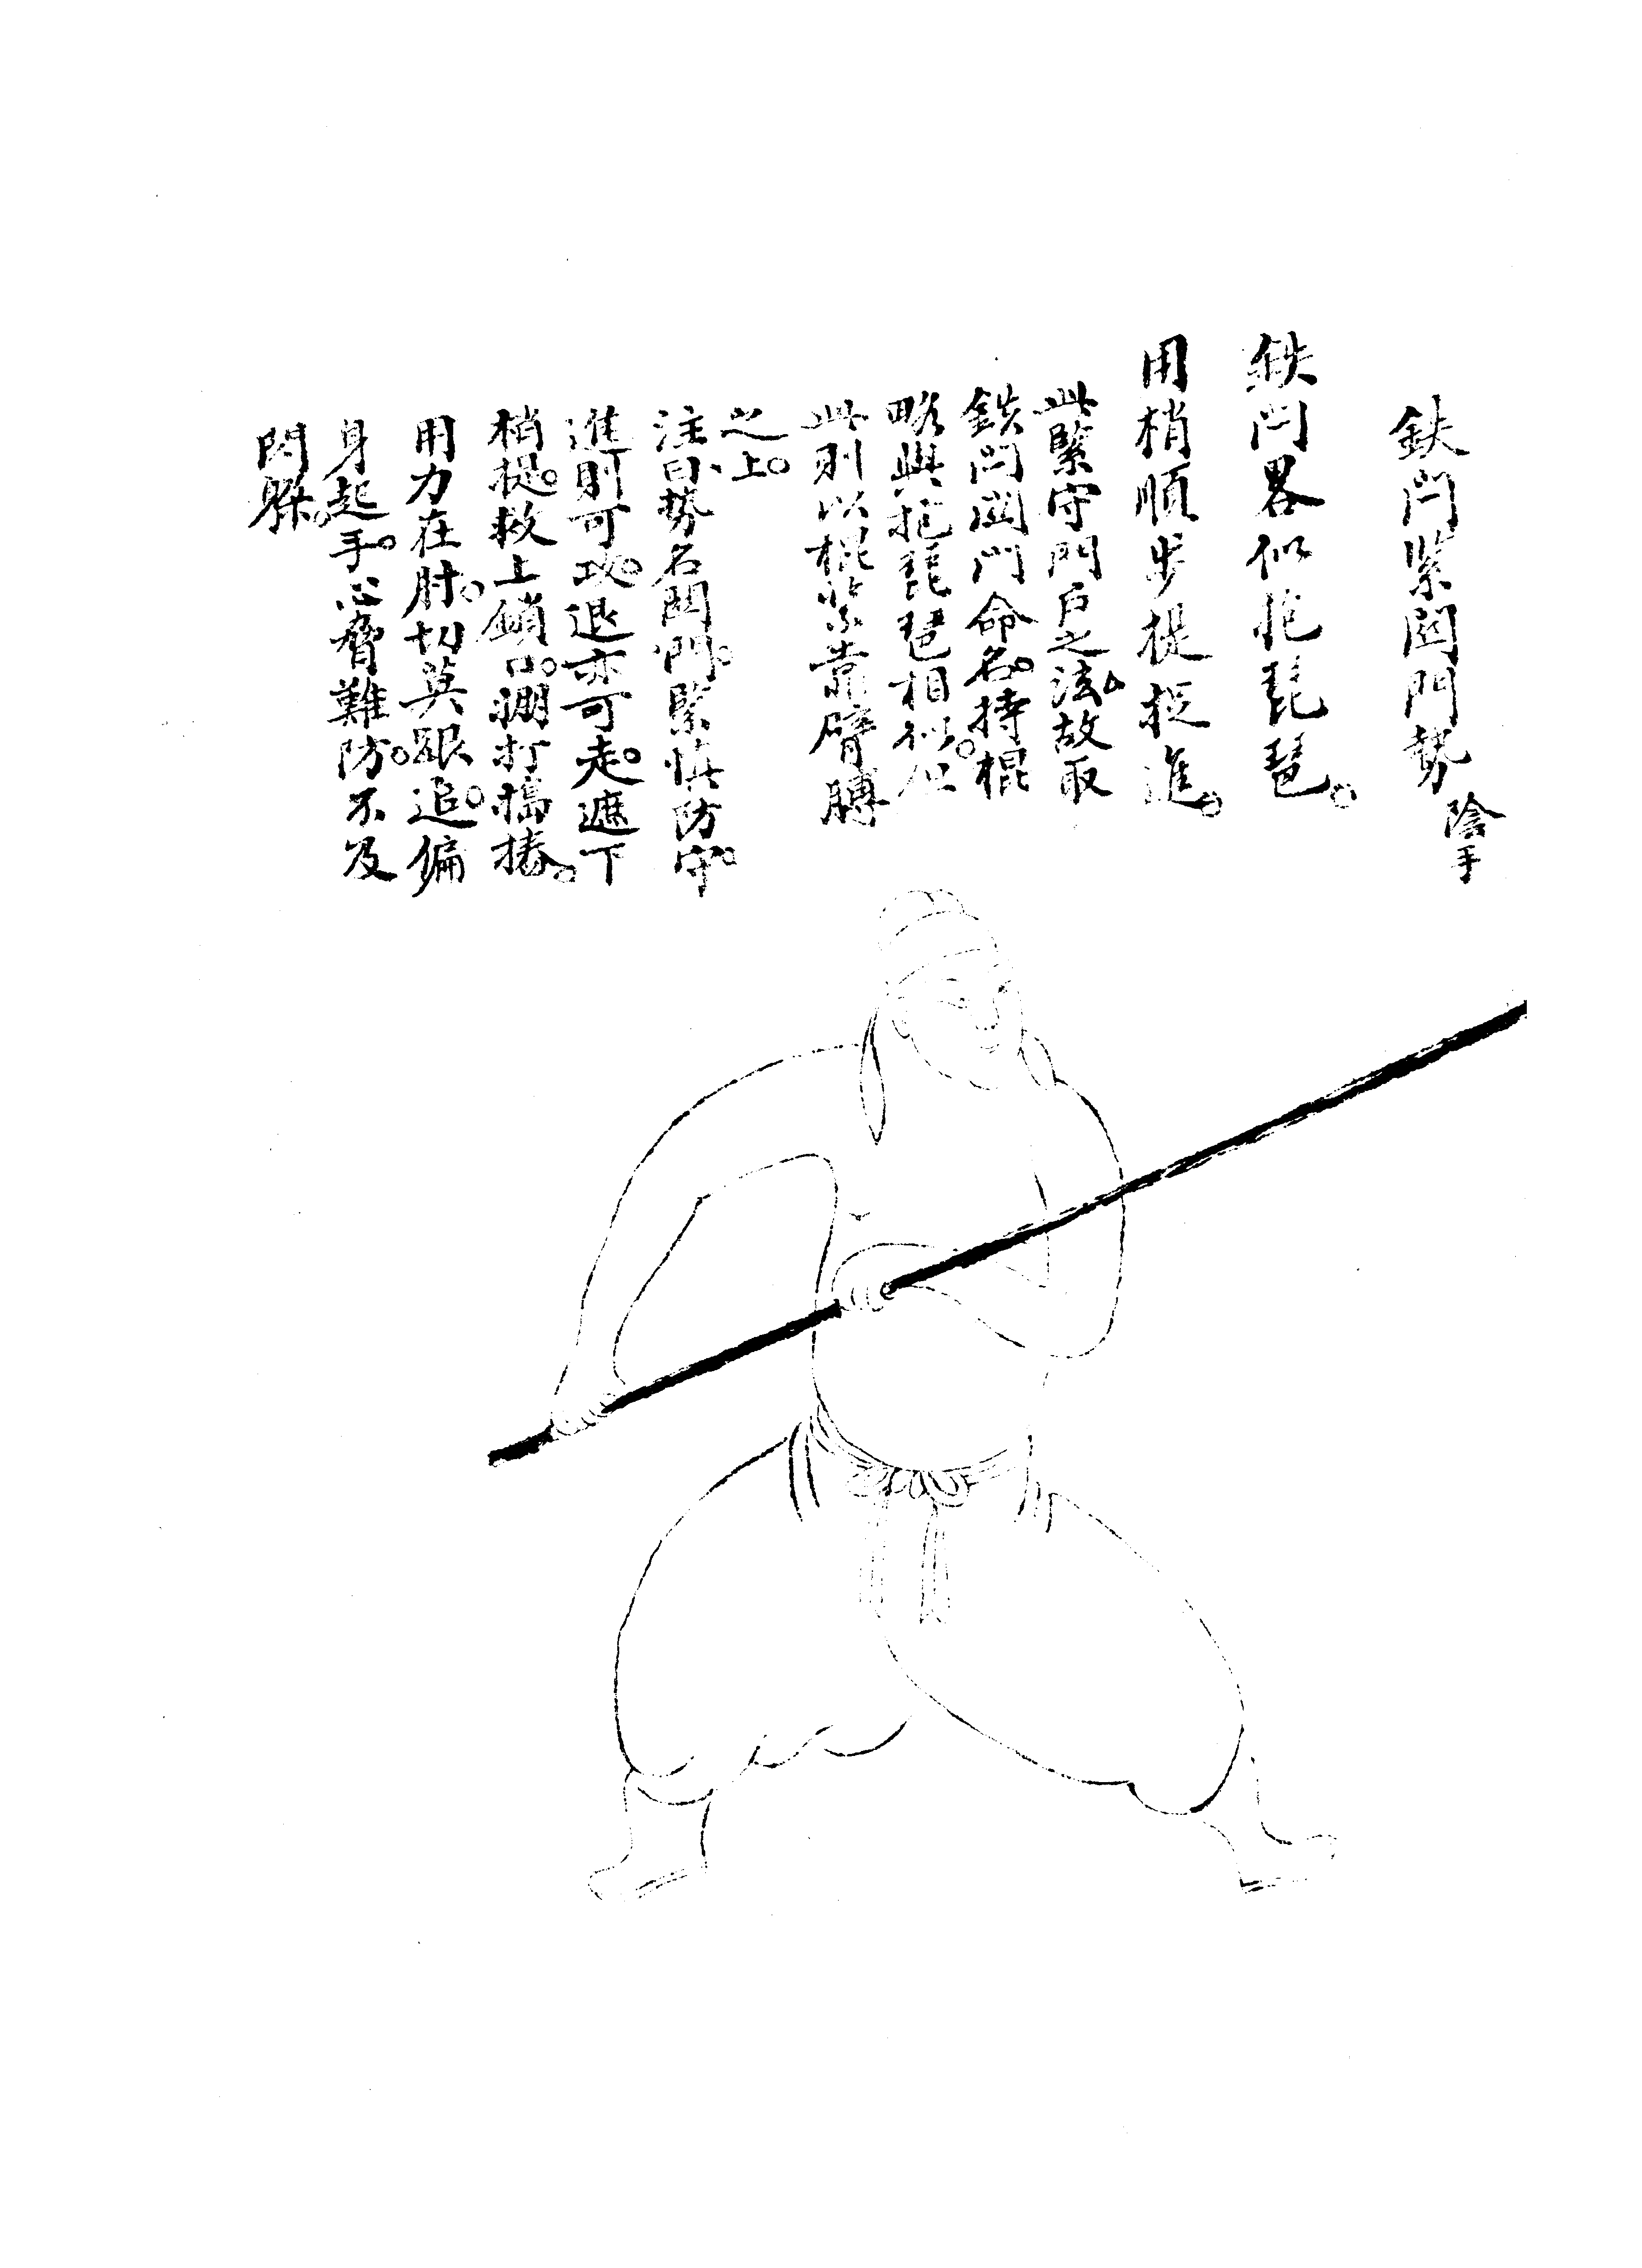 鉄閂緊関門勢 陰手
鉄閂畧似抱琵琶。
用梢順步提捉進。
此緊守門戶之法、故取
鉄閂関門命名。持棍
略與抱琵琶相似。但
此則以棍紧靠臂膊
之上。
注曰、勢名関門。緊慎防守。
進則可攻。退亦可走。遮下
梢提。救上鎖口。掤打搞捧。
用力在肘。切莫跟追。偏
身起手。心脅難防。不及
閃躲。